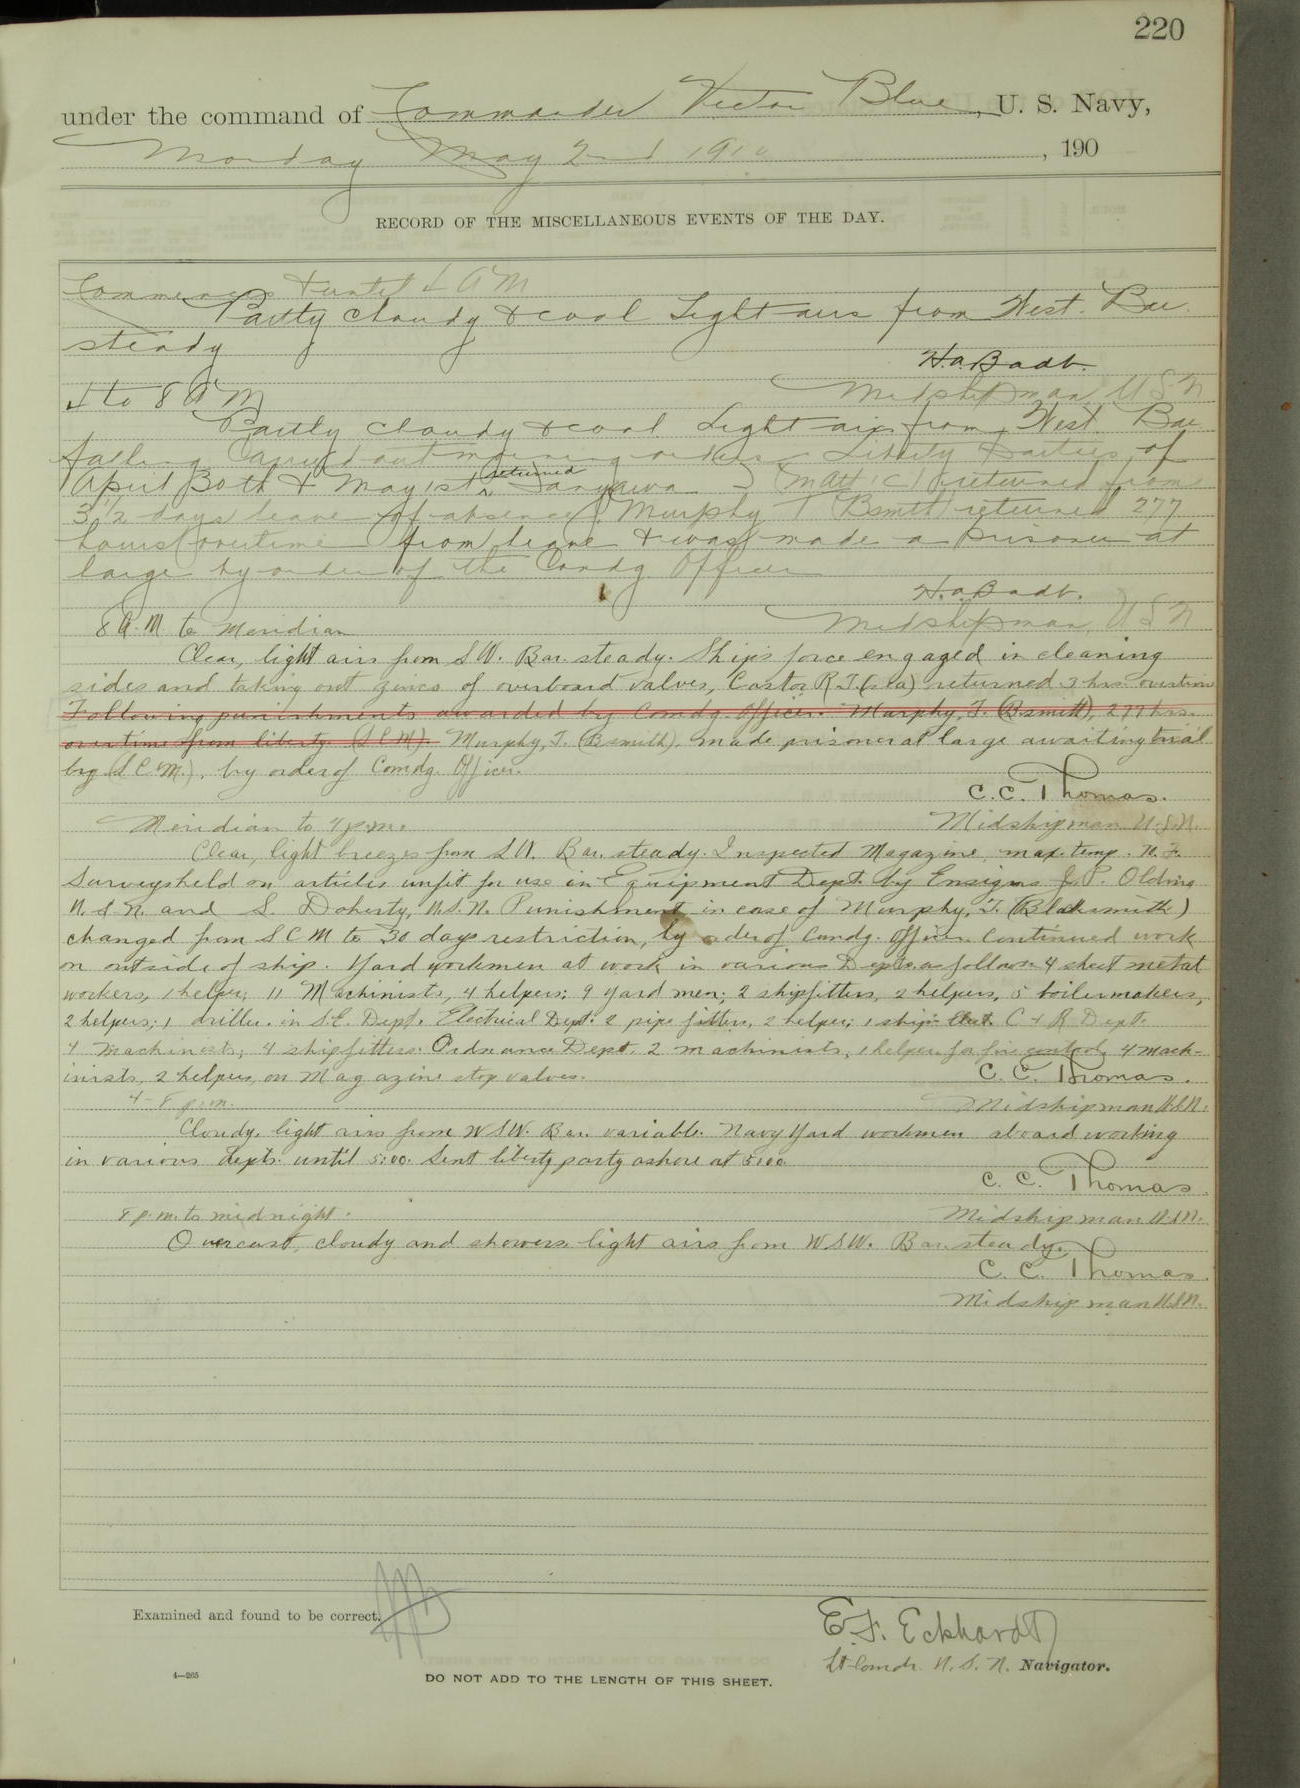 220
under the command of Commander Victor Blue, U. S. Navy,
Monday May 2nd 1910, 190
RECORD OF THE MISCELLANEOUS EVENTS OF THE DAY.
Commences & until 4 A M
Partly cloudy & cool Light airs from West. Bar.
steady
H.A. Badt.
4 to 8 A M
Midshipman, U S N
Partly cloudy & cool Light airs from West Bar
falling Carried out morning orders Liberty parties of
April 30th & May 1st returned (Matt 1C) returned from
3 1/2 days leave of absence. Murphy T (Bsmth) returned 277
hours overtime from leave & was made a prisoner at
large by order of the Comdg Officer
H.A. Badt.
8 A.M to Meridian
Midshipman, U S N
Clear, light airs from S W. Bar. steady. Ship's force engaged in cleaning
sides and taking out zincs of overboard valves, Castor R.T. (sea) returned 3 hrs. overtime
Following punishments awarded by Comdg. Officer. Murphy, T. (B.smith), 277 hrs.
overtime from liberty. (S C M). Murphy, T. (B smith). made prisoner at large awaiting trial
by (S.C.M.), by order of Comdg. Officer.
C.C. Thomas.
Meridian to 4 p.m.
Midshipman U.S.N.
Clear, light breezes from S W. Bar. steady. Inspected Magazine, max. temp.
Surveys held on articles unfit for use in Equipment Dept. by Ensigns J. P. Olding
U.S.N. and S. Doherty, U.S.N. Punishment in case of Murphy, T. (Blacksmith)
changed from S C M to 30 days restriction, by order of Comdg. Officer. Continued work
on outside of ship. Yard workmen at work in various Depts. as follows 4 sheet metal
workers, 1 helper; 11 Machinists, 4 helpers; 9 yard men; 2 shipfitters, 2 helpers, 5 boilermakers,
2 helpers; 1 driller. in S.E. Dept. Electrical Dept. 2 pipe fitters, 2 helper; 1 ship- C & R Dept.
4 Machinists; 4 shipfitters. Ordnance Dept. 2 machinists, 1 helper for fire control, 4 mach-
inists, 2 helpers, on Magazine stop valves.
C. C. Thomas.
4-8 p.m.
Midshipman U.S.N.
Cloudy. light airs from WSW. Bar. variable. Navy Yard workmen aboard working
in various depts. until 5:00. Sent liberty party ashore at 5:00
C. C. Thomas
8 p.m. to midnight.
Midshipman U.S.N.
Overcast, cloudy and showers. light airs from WSW. Bar. steady.
C. C. Thomas.
Midshipman U.S.N.
Examined and found to be correct.
E. F. Eckhardt
Lt-Comdr. U. S. N. Navigator.
4—265
DO NOT ADD TO THE LENGTH OF THIS SHEET.